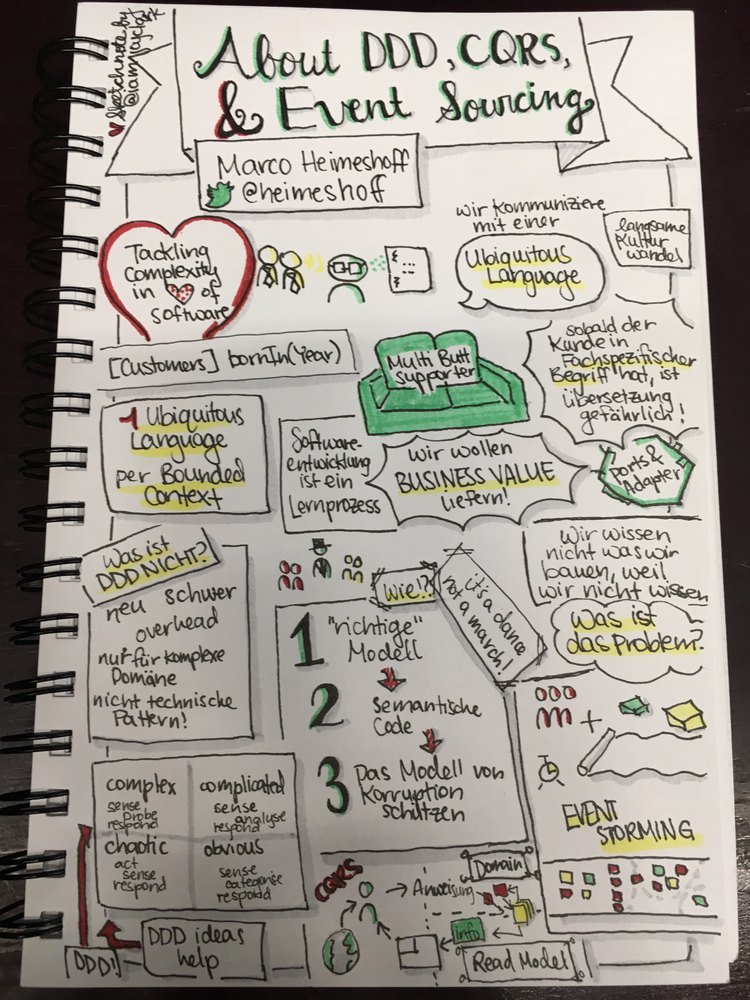 ♥ Sketchnote by
@iamnayr
About DDD, CQRS,
& Event Sourcing
Marco Heimeshoff
@heimeshoff
Tackling
Complexity
in of
software
wir kommuniziere
mit einer
Ubiquitous
Language
langsame
Kultur
wandel
[Customers] bornIn(Year)
Multi Butt
Supporter
sobald der
Kunde in
Fachspezifischer
Begriff hat, ist
Übersetzung
gefährlich!
1 Ubiquitous
Language
per Bounded
Context
Software-
entwicklung
ist ein
Lernprozess
wir wollen
BUSINESS VALUE
liefern!
Ports &
Adapter
Was ist
DDD NICHT?
neu schwer
overhead
nur für komplexe
Domäne
nicht technische
Pattern!
Wie!?
it's a dance
not a march!
Wir wissen
nicht was wir
bauen, weil
wir nicht wissen
was ist
das Problem?
1 "richtige"
Modell
2 Semantische
Code
3 Das Modell von
Korruption
schützen
+
EVENT
STORMING
complex
sense
probe
respond
complicated
sense
analyse
respond
chaotic
act
sense
respond
obvious
sense
categorise
respond
DDD!
DDD ideas
help
CQRS
Anweisung
Domain
Info
Read Model